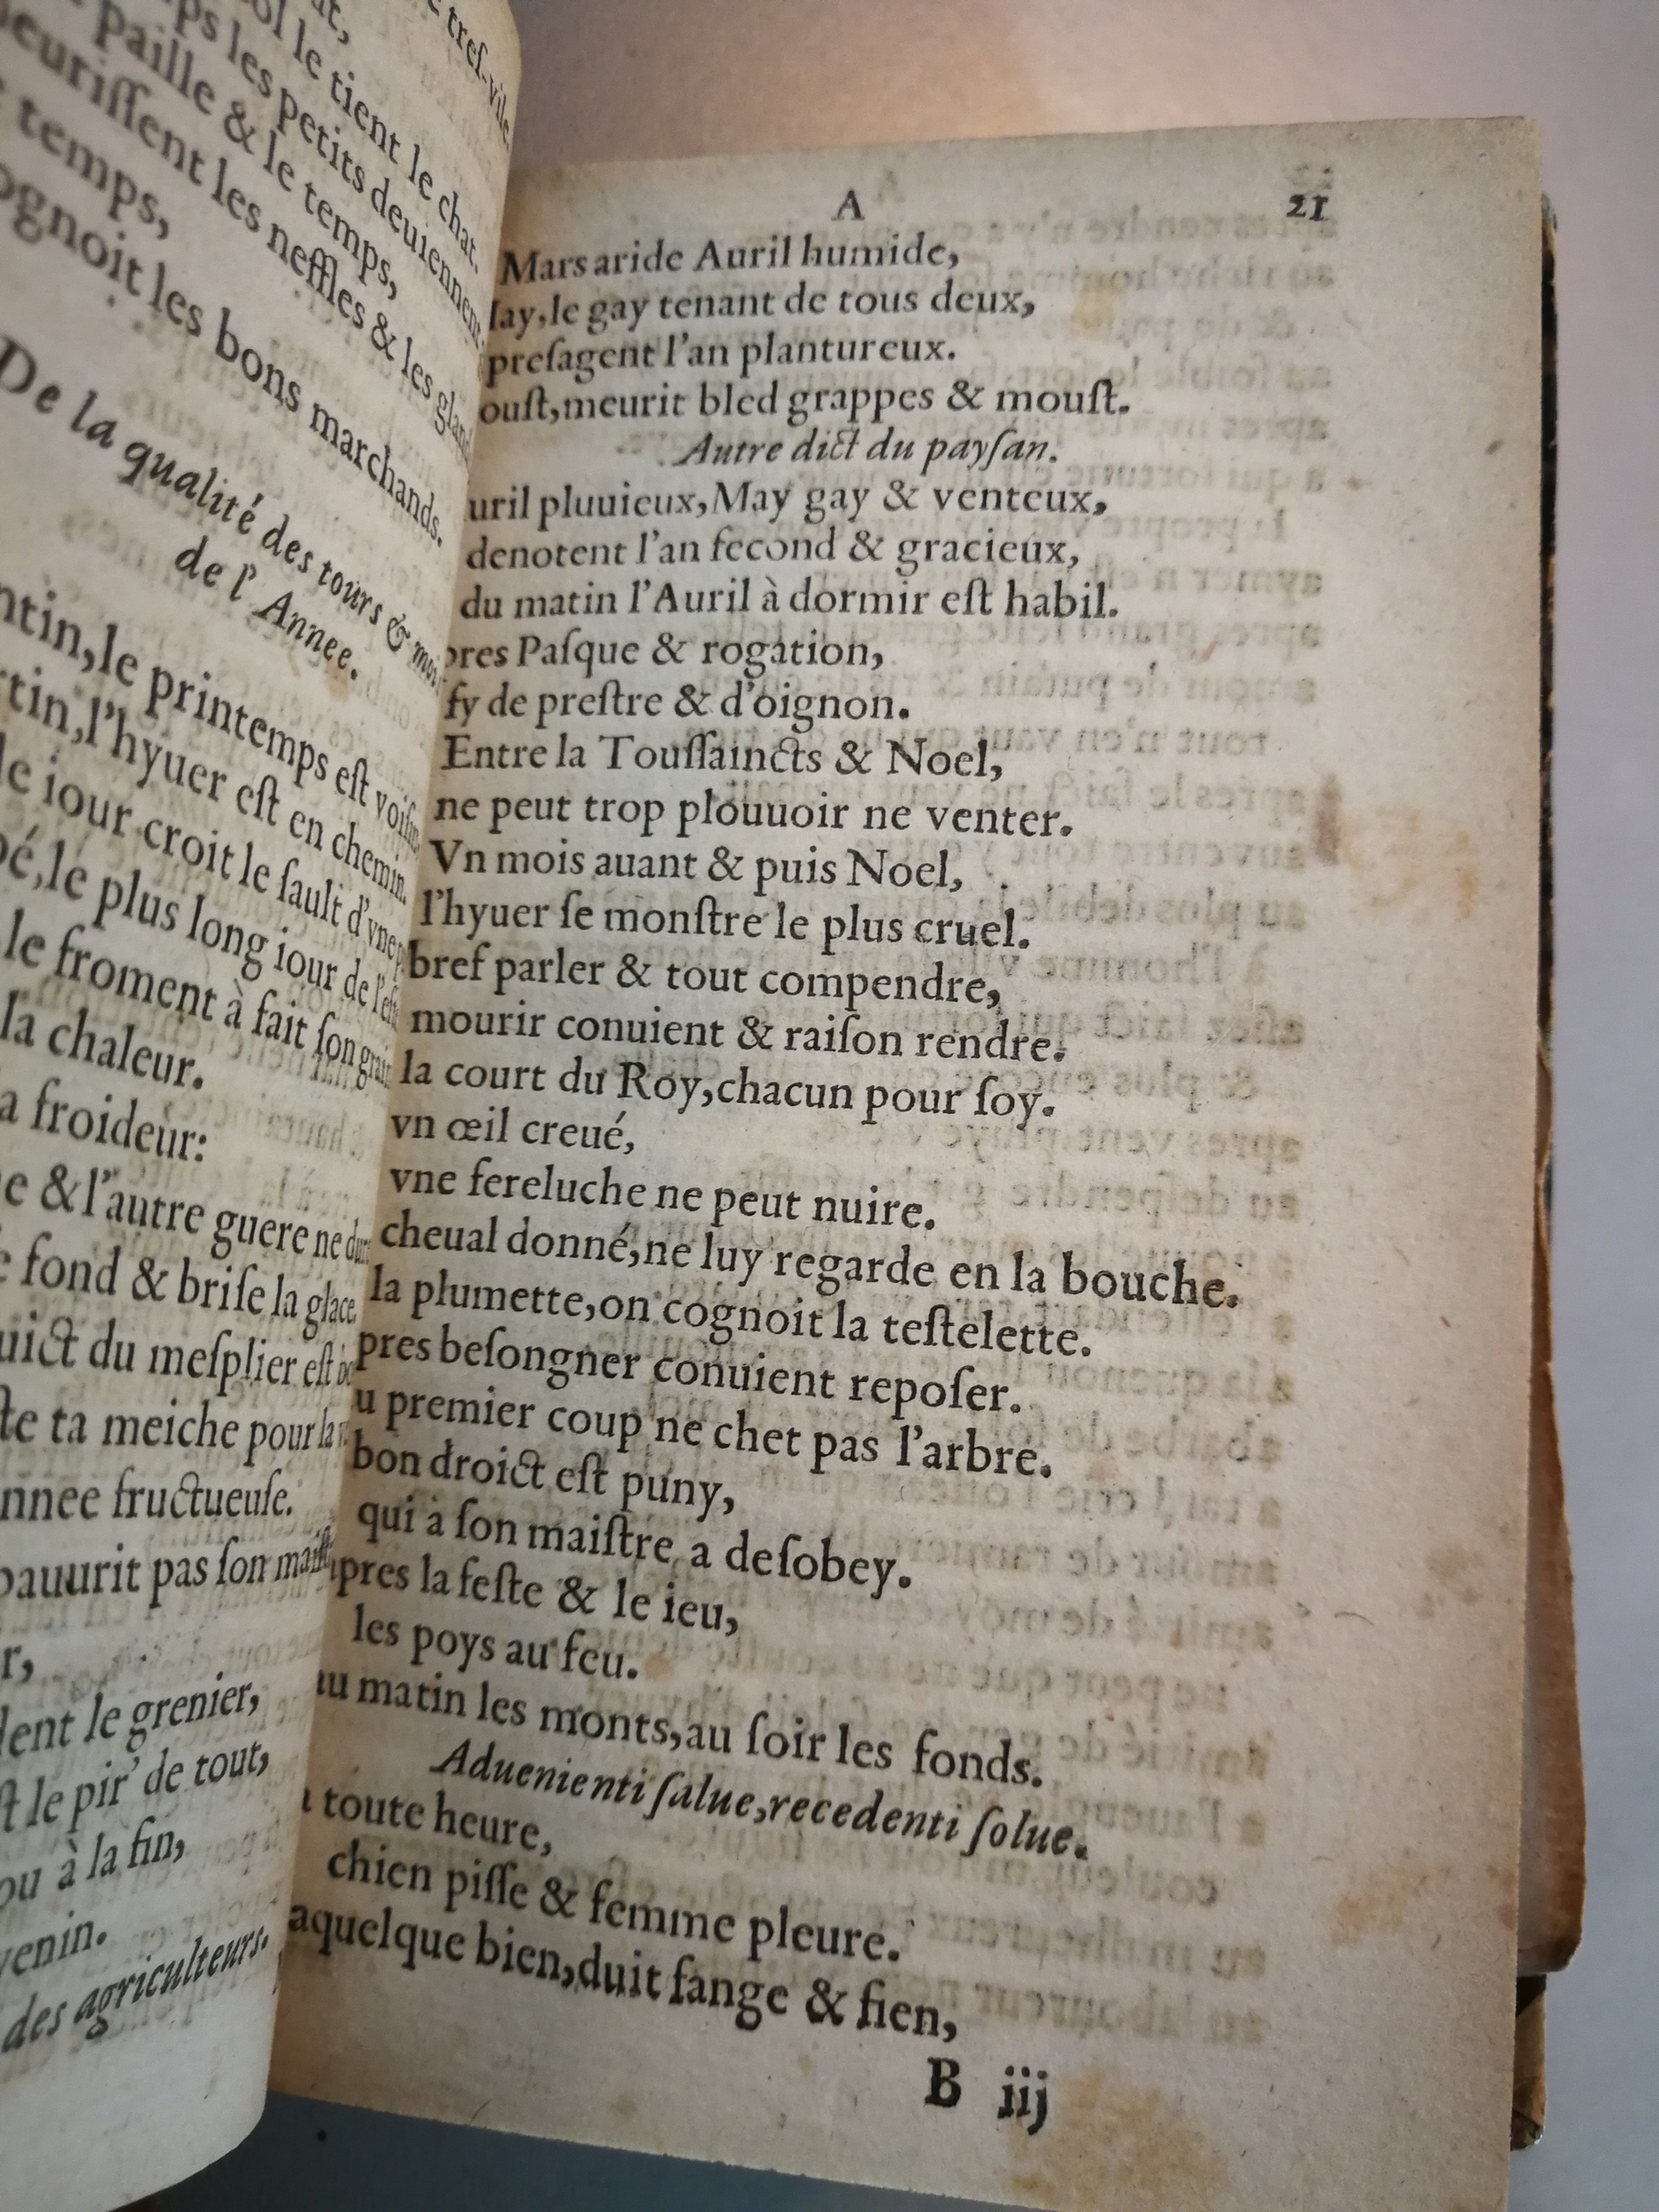 treſ-vile.
nt,
ol le tient le chat.
ps les petits deuiennent
paille & le temps,
euriſſent les neffles & les gland
temps,
ognoit les bons marchands.
De la qualité des iours & moi
de l'Annee.
ntin,le printemps eſt voiſin
rtin,l'hyuer eſt en chemin.
le iour croit le ſault d'vne p
bé,le plus long iour de l'eſt
le froment à fait ſon grain
la chaleur.
a froideur:
e & l'autre guere ne dur
e fond & briſe la glace
uict du meſplier eſt
te ta meiche pour la
nnee fructueuſe.
pauurit pas ſon maiſt
r,
dent le grenier,
ſt le pir' de tout,
ou à la fin,
venin.
des agriculteurs.
A 21
Mars aride Auril humide,
lay,le gay tenant de tous deux,
preſagent l'an plantureux.
ouſt,meurit bled grappes & mouſt.
Autre dict du payſan.
uril pluuieux,May gay & venteux,
denotent l'an fecond & gracieux,
du matin l'Auril à dormir eſt habil.
pres Paſque & rogation,
fy de preſtre & d'oignon.
Entre la Touſſaincts & Noel,
ne peut trop plouuoir ne venter.
Vn mois auant & puis Noel,
l'hyuer ſe monſtre le plus cruel.
bref parler & tout compendre,
mourir conuient & raiſon rendre.
la court du Roy,chacun pour ſoy.
vn œil creué,
vne fereluche ne peut nuire.
cheual donné,ne luy regarde en la bouche.
la plumette,on cognoit la teſtelette.
pres beſongner conuient repoſer.
u premier coup ne chet pas l'arbre.
bon droict eſt puny,
qui à ſon maiſtre a deſobey.
pres la feſte & le ieu,
les poys au feu.
au matin les monts,au ſoir les fonds.
Aduenienti ſalue,recedenti ſolue.
toute heure,
chien piſſe & femme pleure.
aquelque bien,duit fange & fien,
B iij